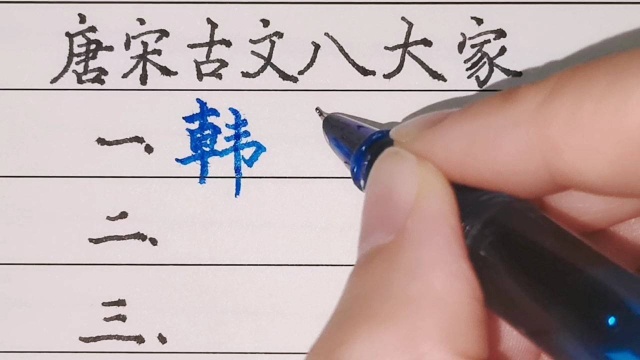 唐宋古文八大家
一、韩
二、
三、